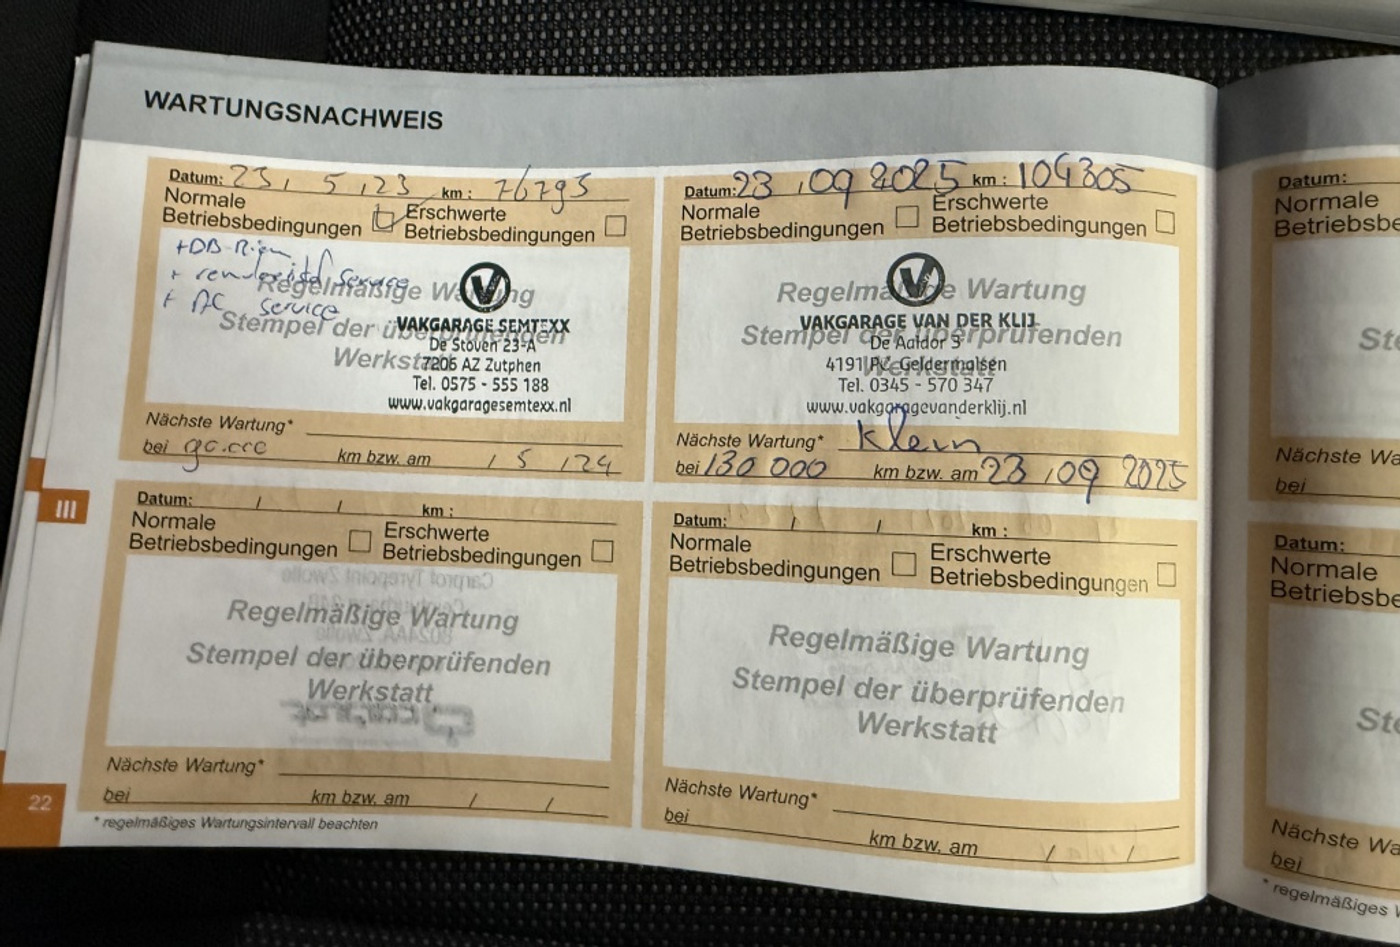 WARTUNGSNACHWEIS
Datum: 23, 5, 23 km: 76793
Normale
Betriebsbedingungen
Erschwerte
Betriebsbedingungen
+DB-Riem
+ remvloeistof service
+ AC service
Regelmäßige Wartung
Stempel der überprüfenden
Werkstatt
VAKGARAGE SEMTEXX
De Stoven 23-A
7206 AZ Zutphen
Tel. 0575 - 555 188
www.vakgaragesemtexx.nl
Nächste Wartung*
bei km bzw. am / 5 / 24
Datum: 23 , 09 2025 km : 104305
Normale
Betriebsbedingungen
Erschwerte
Betriebsbedingungen
Regelmäßige Wartung
Stempel der überprüfenden
Werkstatt
VAKGARAGE VAN DER KLIJ
De Aaldor 3
4191 PC Geldermalsen
Tel. 0345 - 570 347
www.vakgaragevanderklij.nl
Nächste Wartung* Klein
bei 130 000 km bzw. am 23 , 09 2025
III
Datum: / / km :
Normale
Betriebsbedingungen
Erschwerte
Betriebsbedingungen
Regelmäßige Wartung
Stempel der überprüfenden
Werkstatt
Nächste Wartung*
bei km bzw. am / /
Datum: / / km :
Normale
Betriebsbedingungen
Erschwerte
Betriebsbedingungen
Regelmäßige Wartung
Stempel der überprüfenden
Werkstatt
Nächste Wartung*
bei km bzw. am / /
22
* regelmäßiges Wartungsintervall beachten
Datum:
Normale
Nächste
bei
Datum:
Normale
Nächste
bei
* regelmäßiges